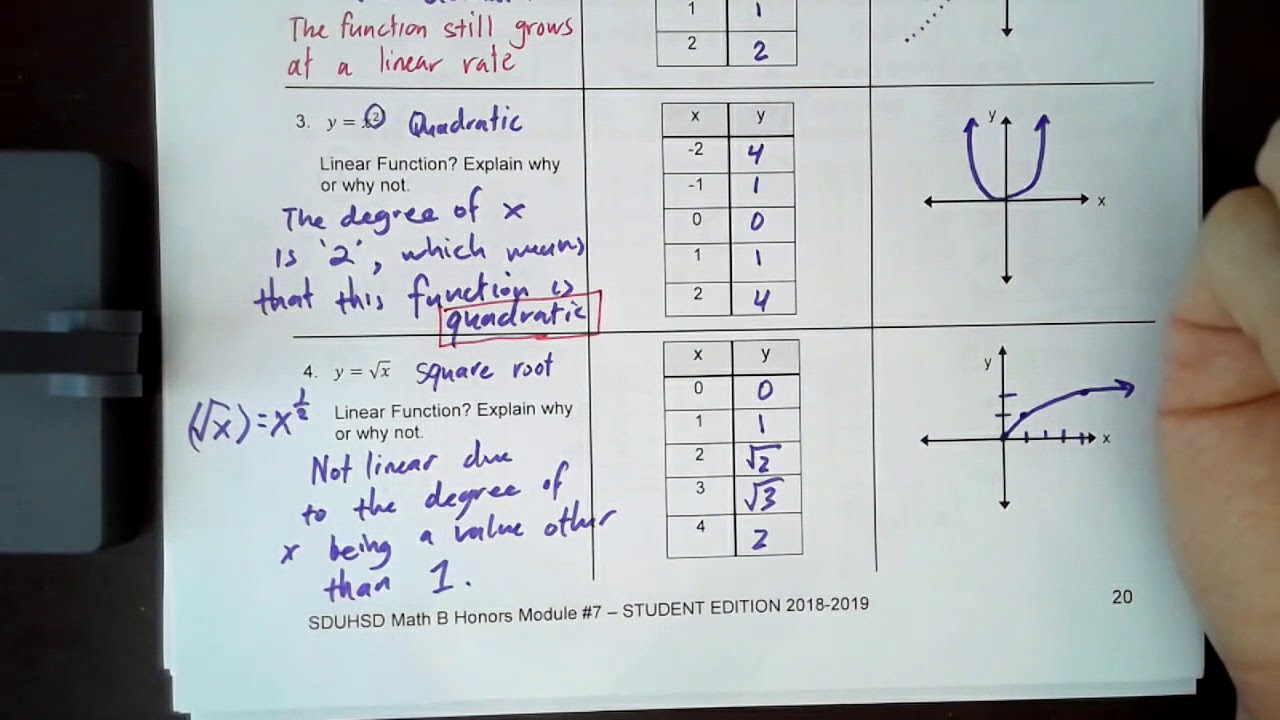 The function still grows
at a linear rate
1 1
2 2
3. y = x² Quadratic
Linear Function? Explain why
or why not.
The degree of x
is '2', which means
that this function is
quadratic
x y
-2 4
-1 1
0 0
1 1
2 4
y
x
4. y = √x square root
(√x) = x^1/2
Linear Function? Explain why
or why not.
Not linear due
to the degree of
x being a value other
than 1.
x y
0 0
1 1
2 √2
3 √3
4 2
y
x
SDUHSD Math B Honors Module #7 – STUDENT EDITION 2018-2019
20